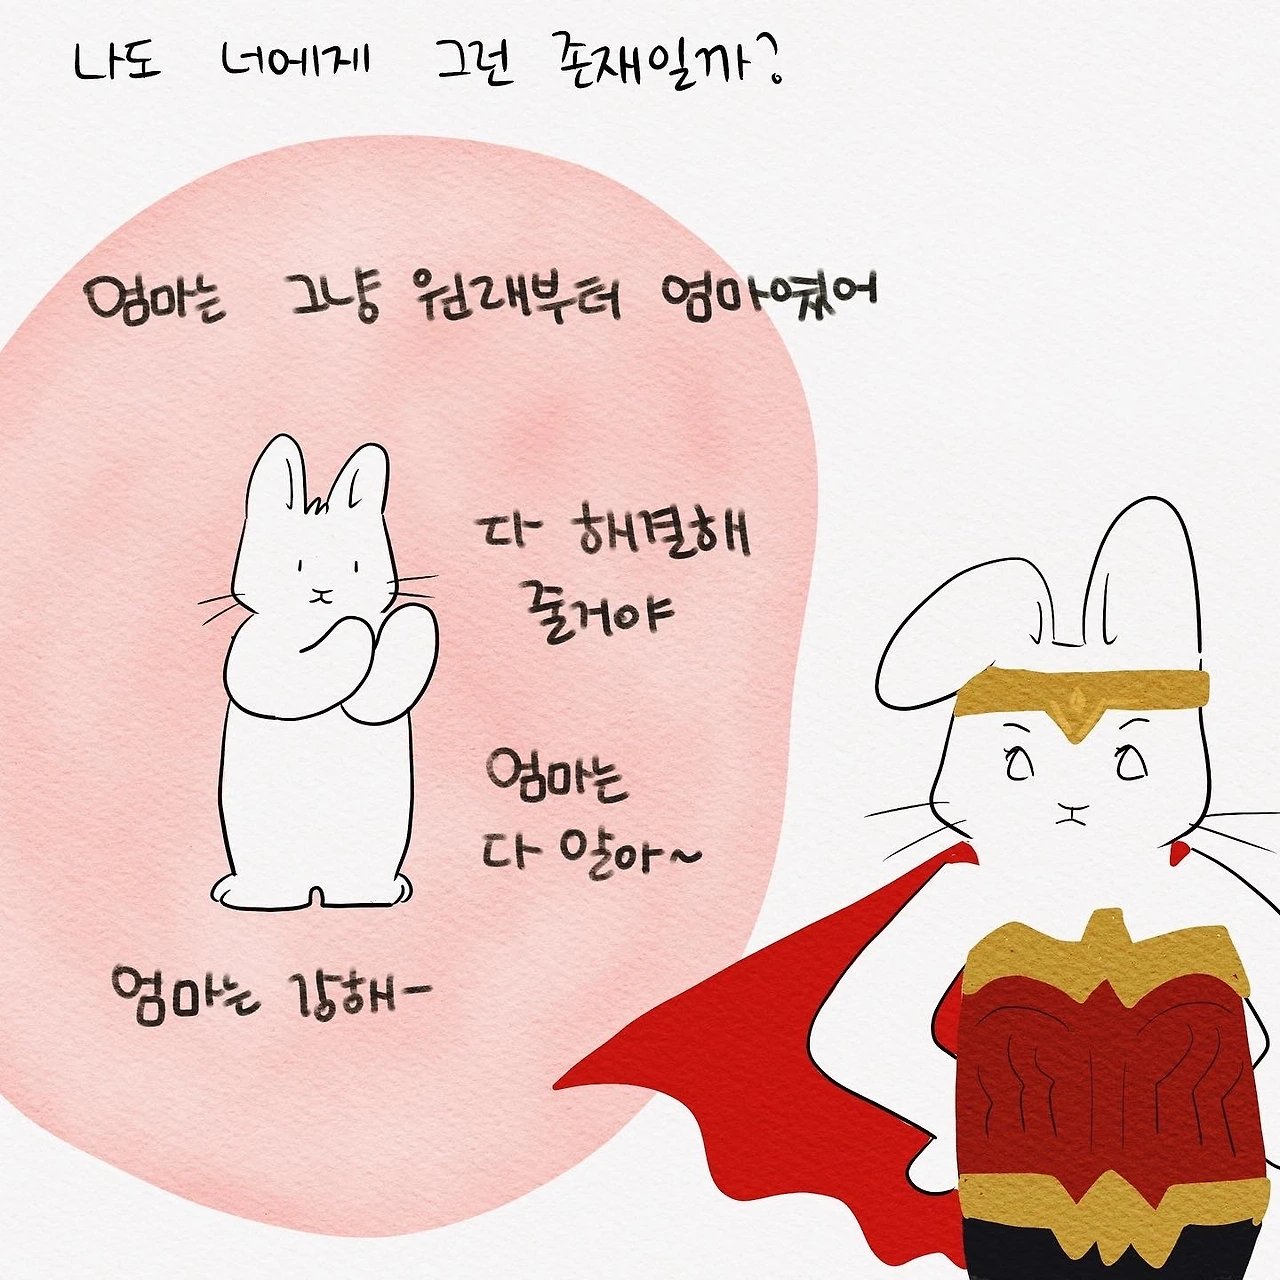 나도 너에게 그런 존재일까?
엄마는 그냥 원래부터 엄마였어
다 해결해
줄거야
엄마는
다 알아~
엄마는 강해-